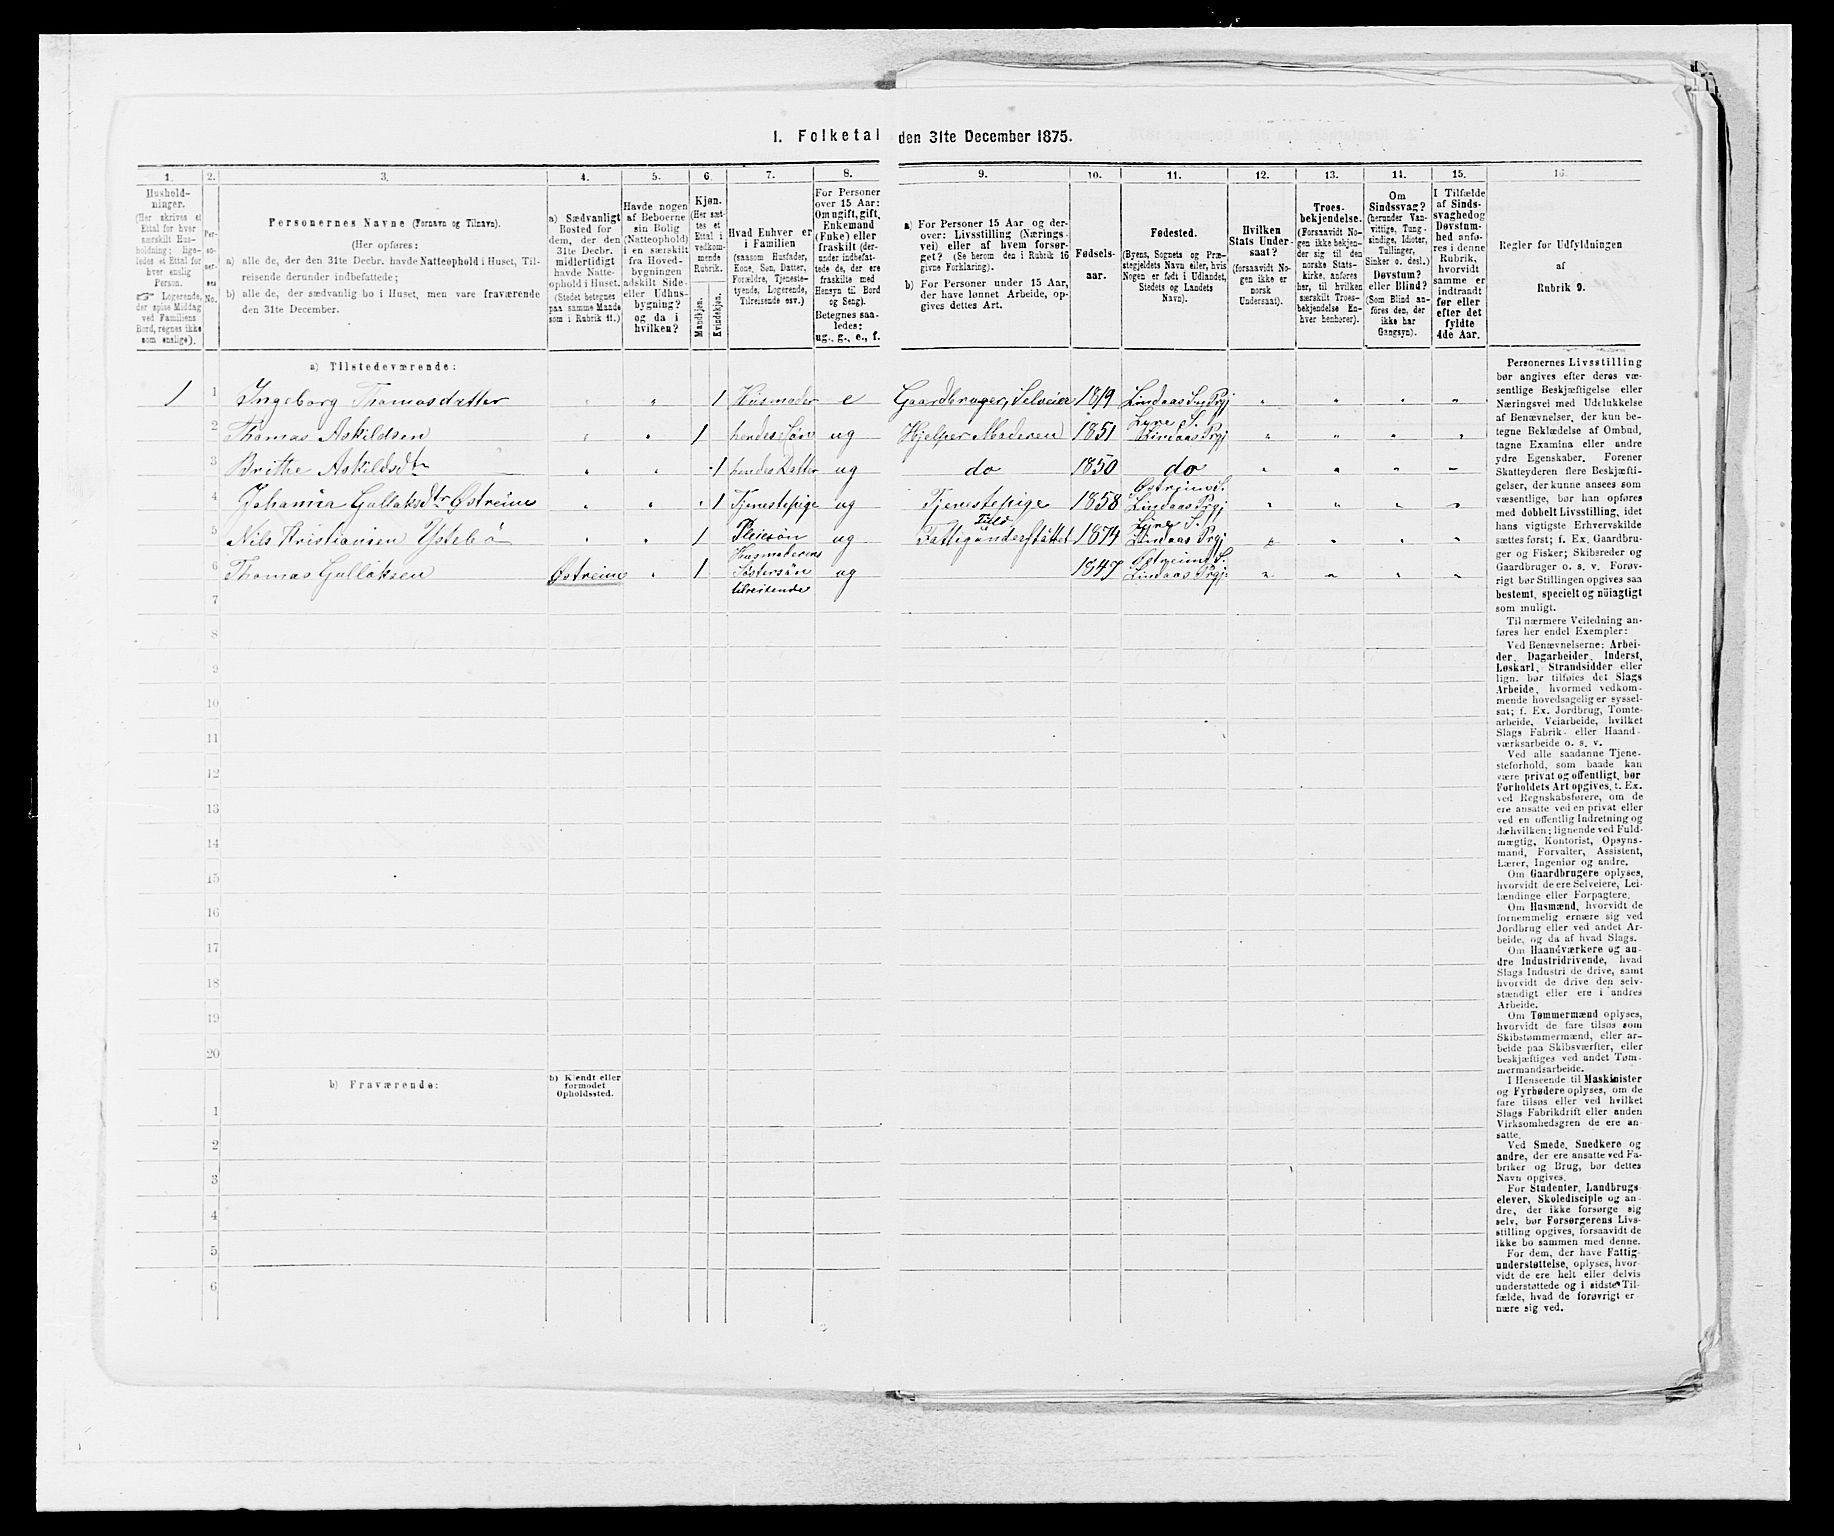 1. Folketal den 31te December 1875.
1.
2.
3.
4.
5.
6.
7.
8.
9.
10.
11.
12.
13.
14.
15.
16.
Hushold-
ninger.
(Her skrives et
Ettal for hver
særskilt Hus-
holdning; lige-
ledes et Ettal for
hver enslig
Person.
☞ Logerende,
der spise Middag
ved Familiens
Bord, regnes ikke
som enslige).
Per-
so-
ner-
nes
No.
Personernes Navne (Fornavn og Tilnavn).
(Her opføres:
a) alle de, der den 31te Decbr. havde Natteophold i Huset, Til-
reisende derunder indbefattede;
b) alle de, der sædvanlig bo i Huset, men vare fraværende
den 31te December.
a) Sædvanligt
Bosted for
dem, der den
31te Decbr.
midlertidigt
havde Natte-
ophold i Huset.
(Stedet betegnes
paa samme Maade
som i Rubrik 11.)
Havde nogen
af Beboerne
sin Bolig
(Natteophold)
i en særskilt
fra Hoved-
bygningen
adskilt Side-
eller Udhus-
bygning?
og da i
hvilken?
Kjøn.
(Her sæt-
tes et
Ettal i
vedkom-
mende
Rubrik.
Mandkjøn.
Kvindekjøn.
Hvad Enhver er
i Familien
(saasom Husfader,
Kone, Søn, Datter,
Forældre, Tjeneste-
tyende, Logerende,
Tilreisende osv.)
For Personer
over 15 Aar:
Om ugift, gift,
Enkemand
(Enke) eller
fraskilt (der-
under indbefat-
tede de, der ere
fraskilte med
Hensyn til Bord
og Seng).
Betegnes saa-
ledes:
ug., g., e., f.
a) For Personer 15 Aar og der-
over: Livsstilling (Nærings-
vei) eller af hvem forsør-
get? (Se herom den i Rubrik 16
givne Forklaring).
b) For Personer under 15 Aar,
der have lønnet Arbeide, op-
gives dettes Art.
Fødsels-
aar.
Fødested.
(Byens, Sognets og Præ-
stegjeldets Navn eller, hvis
Nogen er født i Udlandet,
Stedets og Landets
Navn).
Hvilken
Stats Under-
saat?
(forsaavidt No-
gen ikke er
norsk
Undersaat).
Troes-
bekjendelse.
(Forsaavidt No-
gen ikke bekjen-
der sig til den
norske Stats-
kirke, anføres
her, til hvilken
særskilt Troes-
bekjendelse En-
hver henhører).
Om
Sindssvag?
(herunder Van-
vittige, Tung-
sindige, Idioter,
Tullinger,
Sinker o. desl.)
Døvstum?
eller Blind?
(Som Blind an-
føres den, der
ikke har
Gangsyn).
I Tilfælde
af Sinds-
svaghed og
Døvstum-
hed anfø-
res i denne
Rubrik,
hvorvidt
samme er
indtraadt
før eller
efter det
fyldte
4de Aar.
Regler før Udfyldningen
af
Rubrik 9.
a) Tilstedeværende:
1 1 Ingeborg Thomasdatter " " 1 Husmoder e Gaardbruger, Selveier 1819 Lindaas S. og Prgj " " " "
2 Thomas Askildsen " " 1 hendes Søn ug Hjelper Moderen 1851 Lyre S. Lindaas Prgj " " " "
3 Brithe Askildsdtr " " 1 hendes Datter ug do 1850 do " " " "
4 Johanna Gullaksdtr Østreim " " 1 Tjenestepige ug Tjenestepige 1858 Østreim S. Lindaas Prgj " " " "
5 Nils Kristiansen Ystebø " " 1 Pleiesøn ug Fuld Fattigunderstøttet 1874 Lyre S. Lindaas Prgj " " " "
6 Thomas Gullaksen Østreim " 1 Husmoderens Søstersøn tilreisende ug 1847 Østreims S. Lindaas Prgj. " " " "
7
8
9
10
11
12
13
14
15
16
17
18
19
20
b) Fraværende:
b) Kjendt eller
formodet
Opholdssted.
1
2
3
4
5
6
Personernes Livsstilling
bør angives efter deres væ-
sentlige Beskjæftigelse eller
Næringsvei med Udelukkelse
af Benævnelser, der kun be-
tegne Beklædelse af Ombud,
tagne Examina eller andre
ydre Egenskaber. Forener
Skatteyderen flere Beskjæfti-
gelser, der kunne ansees som
væsentlige, bør han opføres
med dobbelt Livsstilling, idet
hans vigtigste Erhvervskilde
sættes først; f. Ex. Gaardbru-
ger og Fisker; Skibsreder og
Gaardbruger o. s. v. Forøv-
rigt bør Stillingen opgives saa
bestemt, specielt og nöiagtigt
som muligt.
Til nærmere Veiledning an-
føres her endel Exempler:
Ved Benævnelserne: Arbei-
der, Dagarbeider, Inderst,
Løskarl, Strandsidder eller
lign. bør tilføies det Slags
Arbeide, hvormed vedkom-
mende hovedsagelig er syssel-
sat; f. Ex. Jordbrug, Tomte-
arbeide, Veiarbeide, hvilket
Slags Fabrik- eller Haand-
værksarbeide o. s. v.
Ved alle saadanne Tjene-
steforhold, som baade kan
være privat og offentligt, bør
Forholdets Art opgives, t. Ex.
ved Regnskabsførere, om de
ere ansatte ved en privat eller
ved en offentlig Indretning og
da hvilken; lignende ved Fuld-
mægtig, Kontorist, Opsyns-
mand, Forvalter, Assistent,
Lærer, Ingeniør og andre.
Om Gaardbrugere oplyses,
hvorvidt de ere Selveiere, Lei-
lændinge eller Forpagtere.
Om Husmænd, hvorvidt de
fornemmelig ernære sig ved
Jordbrug eller ved andet Ar-
beide, og da af hvad Slags.
Om Haandværkere og an-
dre Industridrivende, hvad
Slags Industri de drive, samt
hvorvidt de drive den selv-
stændigt eller ere i andres
Arbeide.
Om Tømmermænd oplyses,
hvorvidt de fare tilsøs som
Skibstømmermænd, eller ar-
beide paa Skibsværfter, eller
beskjæftiges ved andet Tøm-
mermandsarbeide.
I Henseende til Maskinister
og Fyrbødere oplyses, om de
fare tilsøs eller ved hvilket
Slags Fabrikdrift eller anden
Virksomhedsgren de ere an-
satte.
Ved Smede, Snedkere og
andre, der ere ansatte ved Fa-
briker og Brug, bør dettes
Navn opgives.
For Studenter, Landbrugs-
elever, Skoledisciple og an-
dre, der ikke forsørge sig
selv, bør Forsørgerens Livs-
stilling opgives, forsaavidt de
ikke bo sammen med denne.
For dem, der have Fattig-
understøttelse, oplyses, hvor-
vidt de ere helt eller delvis
understøttede og i sidste Til-
fælde, hvad de forøvrigt er-
nære sig ved.